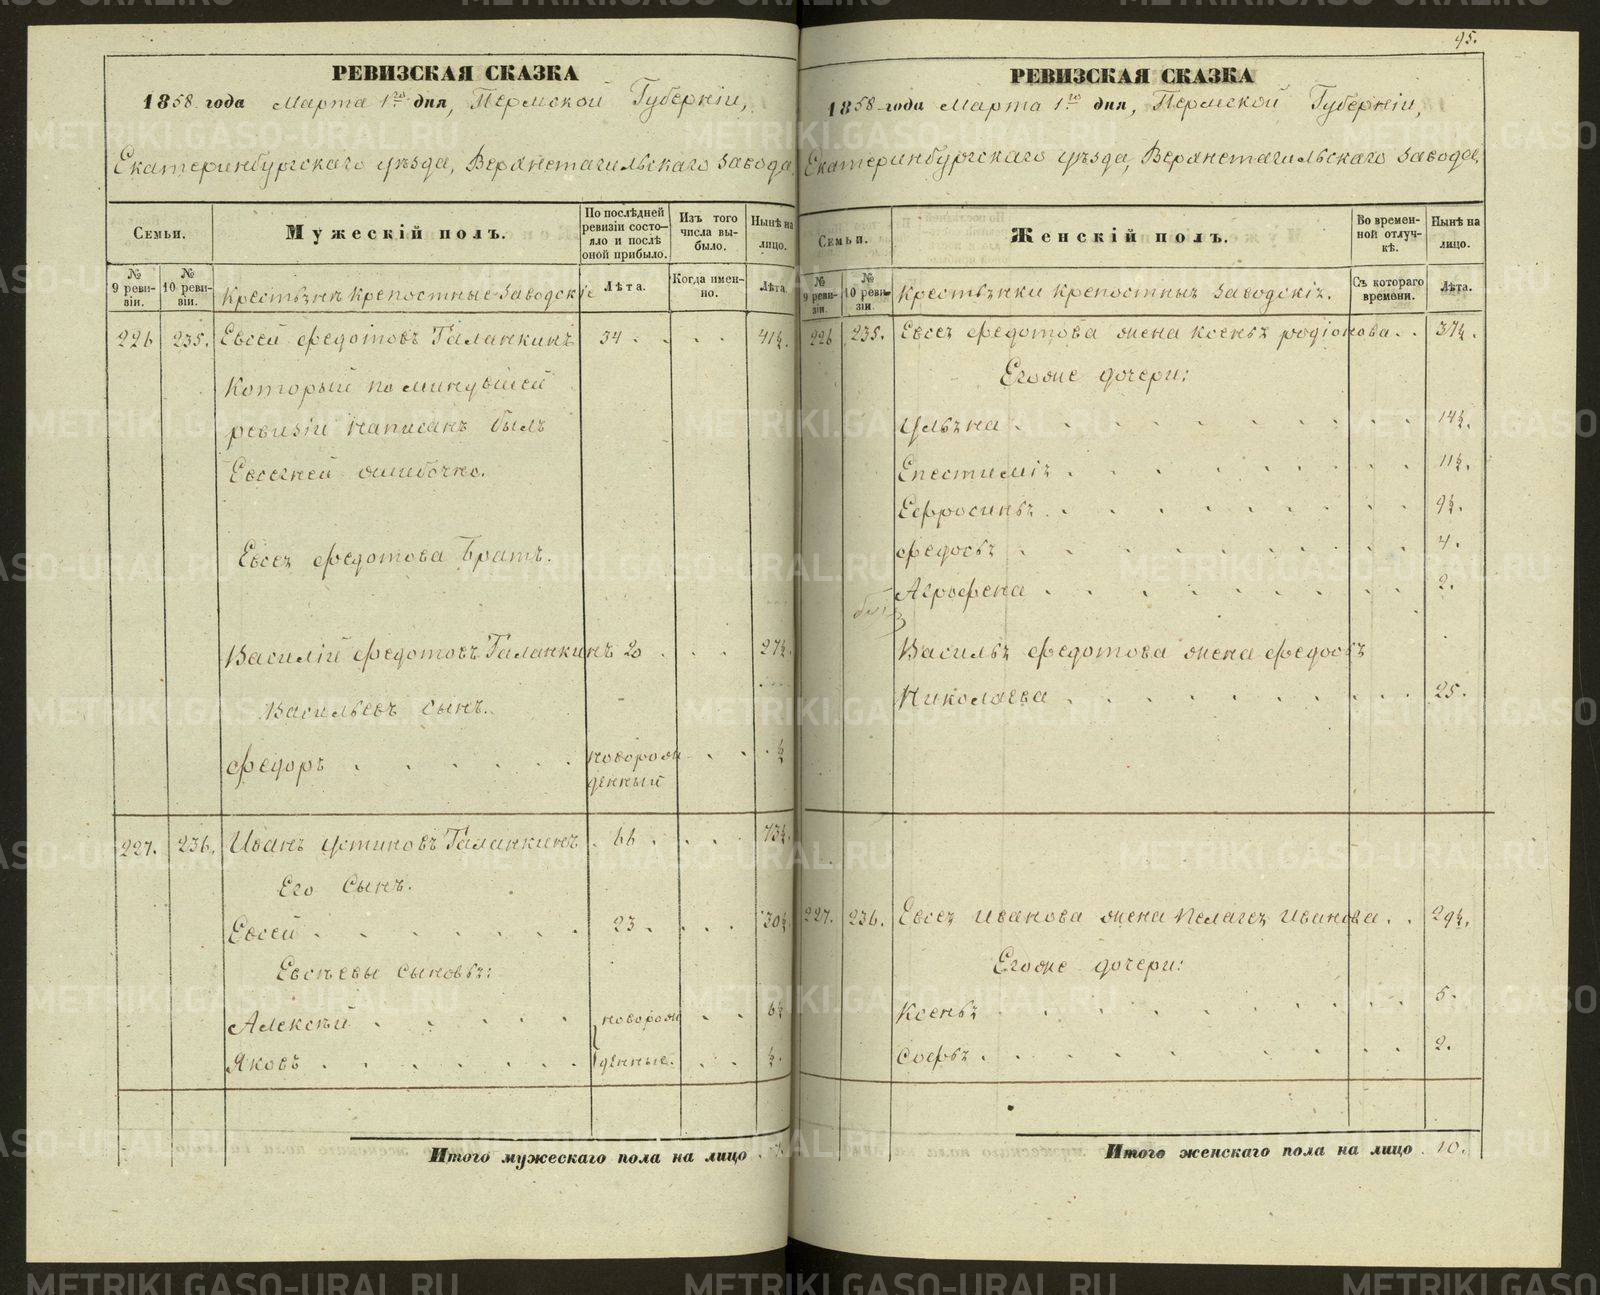 РЕВИЗСКАЯ СКАЗКА
1858 года Марта 1го дня, Пермской Губерніи,
Екатеринбургскаго уѣзда, Верхнетагильскаго Завода,
Семьи.
Мужескій полъ.
По послѣдней ревизіи состояло и послѣ оной прибыло.
Изъ того числа выбыло.
Нынѣ на лицо.
№ 9 ревизіи.
№ 10 ревизіи.
Крестьяне Крепостные Заводскіе
Лѣта.
Когда именно.
Лѣта.
226 235. Евсей Федотовъ Галанкинъ 34 41½.
Который по минувшей
ревизіи написанъ былъ
Евсегней ошибочно.
Евсея Федотова Братъ.
Василій Федотовъ Галанкинъ 20 27½.
Васильевъ сынъ.
Федоръ новорож ½
денный
227. 236. Иванъ Устиновъ Галанкинъ 66 73½.
Его Сынъ.
Евсей 23 30½
Евсѣевы сыновья:
Алексѣй новорож 6½
Яковъ денные. ½.
Итого мужескаго пола на лицо 7.
95.
РЕВИЗСКАЯ СКАЗКА
1858 года Марта 1го дня, Пермской Губерніи,
Екатеринбургскаго уѣзда, Верхнетагильскаго Завода,
Семьи.
Женскій полъ.
Во временной отлучкѣ.
Нынѣ на лицо.
№ 9 ревизіи.
№ 10 ревизіи.
Крестьянки крепостныя Заводскія.
Съ котораго времени.
Лѣта.
226 235. Евсея Федотова жена Ксенья родіонова 37½.
Егоже дочери:
Ульяна 14½.
Епестимія 11½.
Ефросинья 9½.
Федосья 4.
Агрофена 2.
Василья Федотова жена Федосья
Николаева 25.
227. 236. Евсея Иванова жена Пелагея Иванова 29½.
Егоже дочери:
Ксенья 5.
Софья 2.
Итого женскаго пола на лицо 10.
METRIKI.GASO-URAL.RU